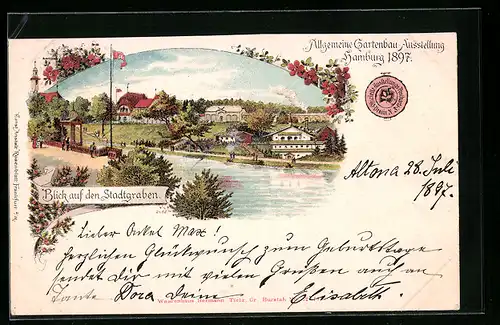 Allgemeine Gartenbau-Ausstellung
Hamburg 1897.
Altona 28. Juli
1897.
Blick auf den Stadtgraben.
Lieber Onkel Max!
Herzlichen Glückwunsch zum Geburtstage
sendet Dir mit vielen Grüßen auch an
Tante Dora Deine Elisabeth.
Warenhaus Hermann Tietz, Gr. Burstah